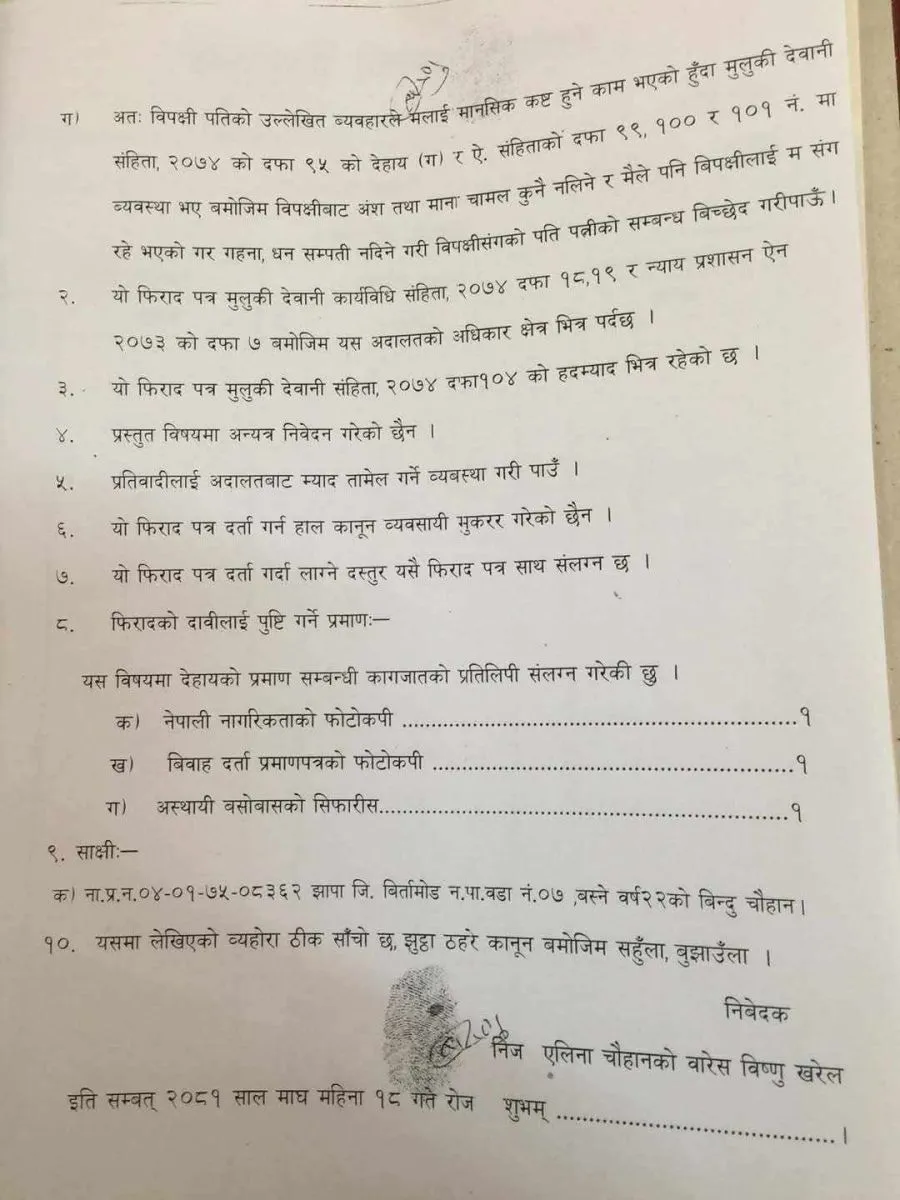 ग) अतः विपक्षी पतिको उल्लेखित व्यवहारले मलाई मानसिक कष्ट हुने काम भएको हुँदा मुलुकी देवानी
संहिता, २०७४ को दफा ९५ को देहाय (ग) र ऐ. संहिताको दफा ९९, १०० र १०१ नं. मा
व्यवस्था भए बमोजिम विपक्षीबाट अंश तथा माना चामल कुनै नलिने र मैले पनि बिपक्षीलाई म संग
रहे भएको गर गहना, धन सम्पती नदिने गरी विपक्षीसंगको पति पत्नीको सम्बन्ध बिच्छेद गरीपाऊँ ।
२. यो फिराद पत्र मुलुकी देवानी कार्यविधि संहिता, २०७४ दफा १८,१९ र न्याय प्रशासन ऐन
२०७३ को दफा ७ बमोजिम यस अदालतको अधिकार क्षेत्र भित्र पर्दछ ।
३. यो फिराद पत्र मुलुकी देवानी संहिता, २०७४ दफा१०४ को हदम्याद भित्र रहेको छ ।
४. प्रस्तुत विषयमा अन्यत्र निवेदन गरेको छैन ।
५. प्रतिवादीलाई अदालतबाट म्याद तामेल गर्ने व्यबस्था गरी पाउँ ।
६. यो फिराद पत्र दर्ता गर्न हाल कानून व्यवसायी मुकरर गरेको छैन ।
७. यो फिराद पत्र दर्ता गर्दा लाग्ने दस्तुर यसै फिराद पत्र साथ संलग्न छ ।
८. फिरादको दावीलाई पुष्टि गर्ने प्रमाणः—
यस विषयमा देहायको प्रमाण सम्बन्धी कागजातको प्रतिलिपी संलग्न गरेकी छु ।
क) नेपाली नागरिकताको फोटोकपी ........................................................१
ख) बिवाह दर्ता प्रमाणपत्रको फोटोकपी ...................................................१
ग) अस्थायी बसोबासको सिफारीस.........................................................१
९. साक्षीः—
क) ना.प्र.न.०४-०१-७५-०८३६२ झापा जि. बिर्तामोड न.पा.वडा नं.०७ ,बस्ने वर्ष२२को बिन्दु चौहान।
१०. यसमा लेखिएको व्यहोरा ठीक साँचो छ, झुट्ठा ठहरे कानून बमोजिम सहुँला, बुझाउँला ।
निबेदक
निज एलिना चौहानको वारेस विष्णु खरेल
इति सम्बत् २०८१ साल माघ महिना १८ गते रोज शुभम् .......................................।